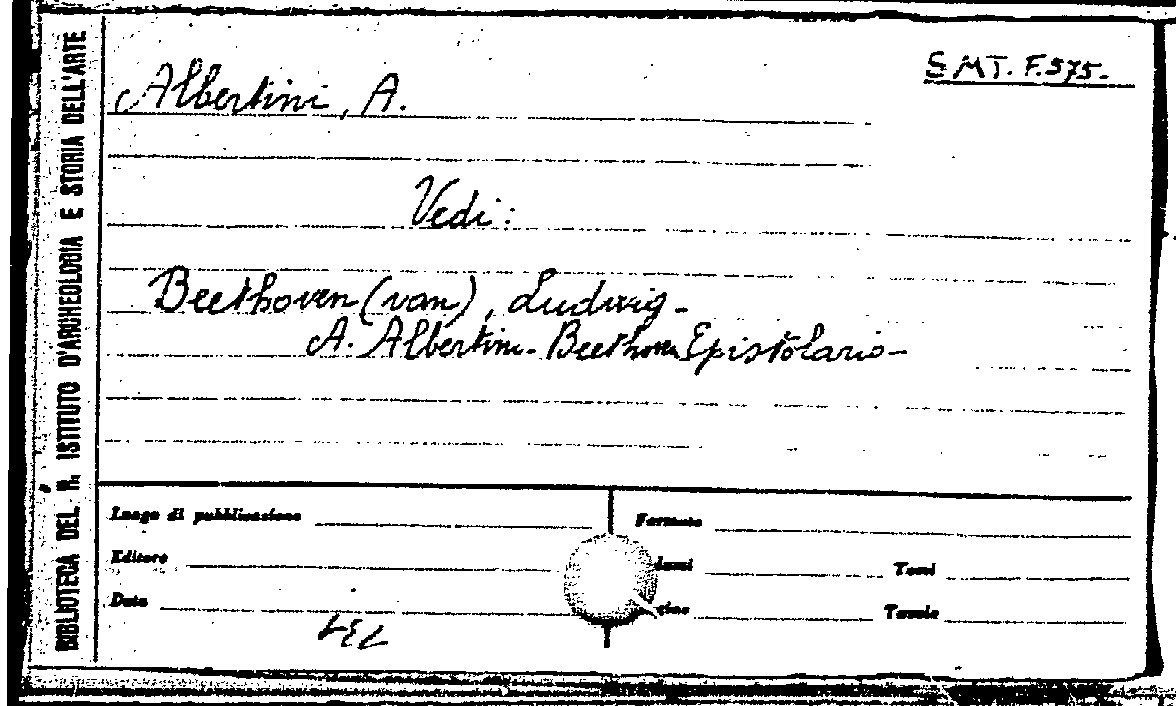 BIBLIOTECA DEL R. ISTITUTO D'ARCHEOLOGIA E STORIA DELL'ARTE
S.MT. F.575.
Albertini, A.
Vedi:
Beethoven (van), Ludwig -
A. Albertini - Beethoven Epistolario -
Luogo di pubblicazione
Formato
Editore
Tomi
Data
Tavole